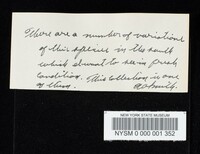 There are a number of variations
of this species in the south
which I want to see in fresh
condition. This collection is one
of them.
NEW YORK STATE MUSEUM
NYSM 0 000 001 352